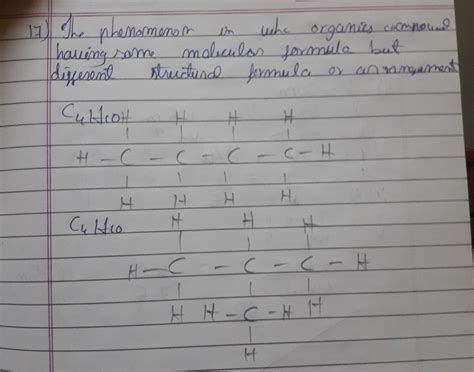 17) The phenomenon in whc organics compound
having same molecular formula but
different structural formula or arrangement
C4H10 H H H H
H - C - C - C - C - H
H H H H
C4H10 H H H
H - C - C - C - H
H H - C - H H
H